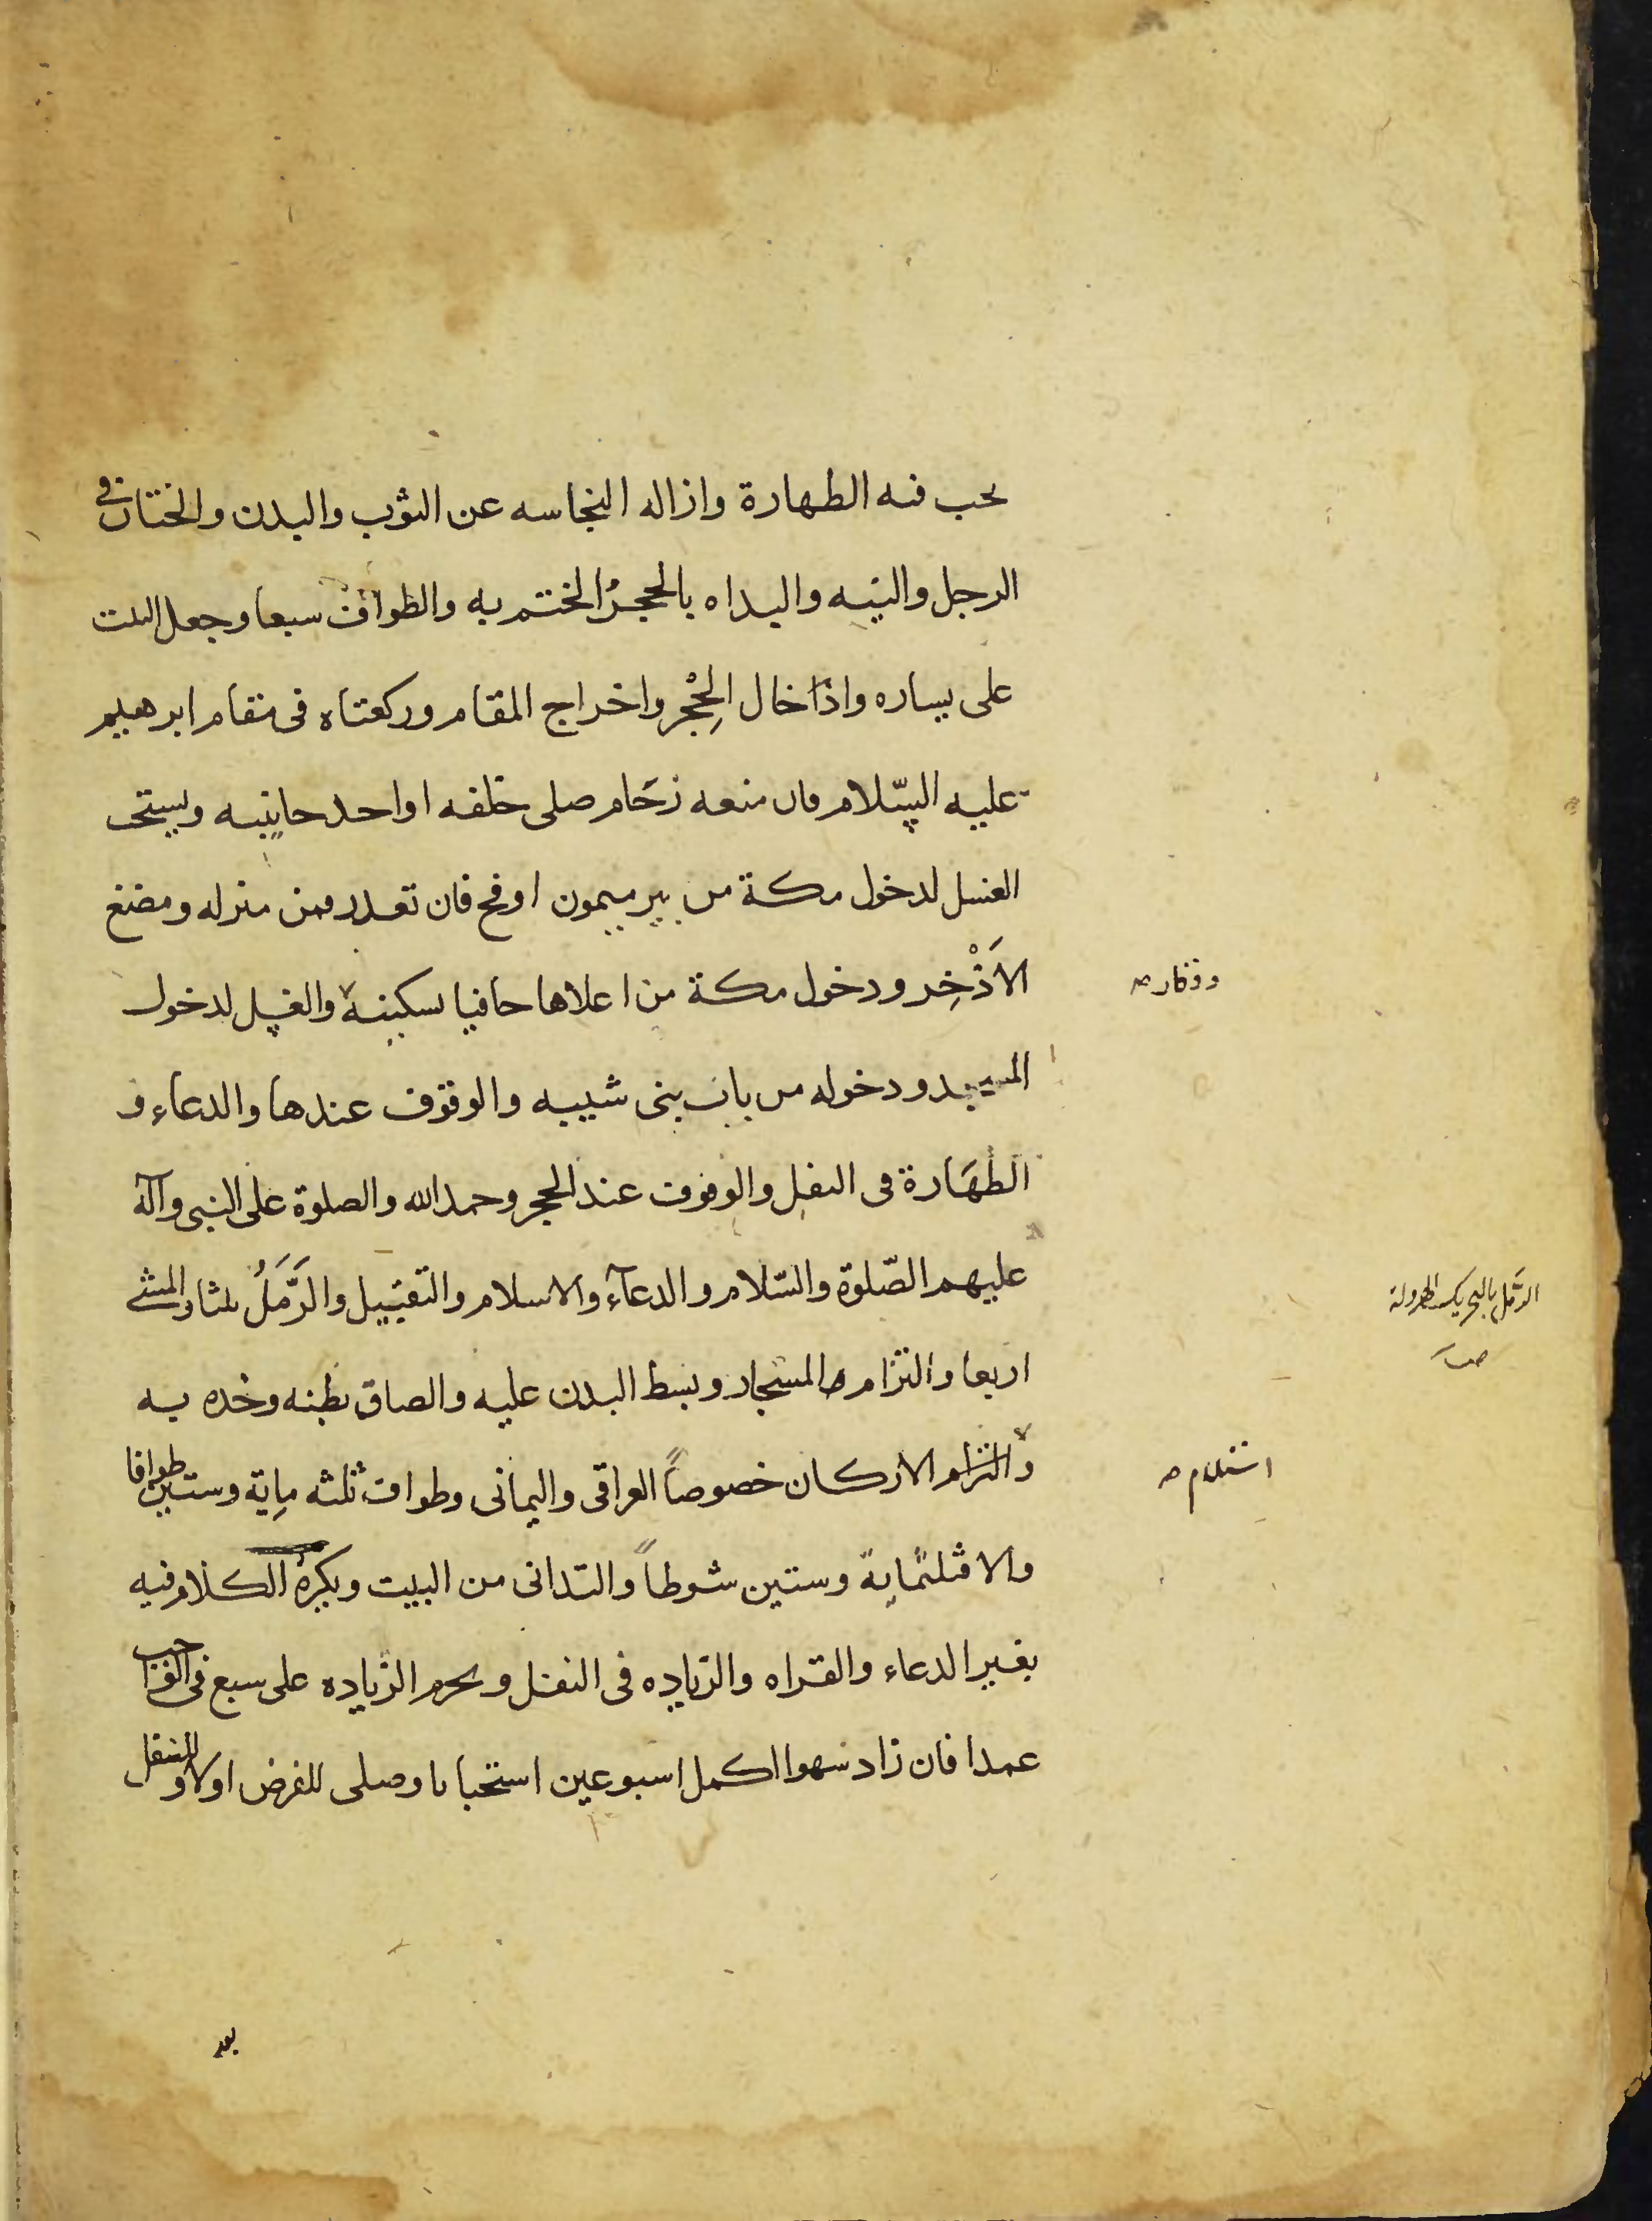 يجب فيه الطهارة وازاله النجاسه عن الثوب والبدن والختان في
الرجل والنيه والبداه بالحجر والختم به والطواف سبعا وجعل البيت
على يساره وادخال الحِجْر واخراج المقام وركعتاه في مقام ابرهيم
عليه السّلام فان منعه زحَام صلى خلفه او احد جانبيه ويستحب
الغسل لدخول مكة من بير ميمون او فخ فان تعذر فمن منزله ومضغ
الاَذْخِر ودخول مكة من اعلاها حافيا بسكينة والغسل لدخول
ووقار صح
المسجد ودخوله من باب بنى شيبه والوقوف عندها والدعاء و
الطهَارة فى النفل والوقوف عند الحجر وحمد الله والصلوة على النبى وآله
عليهم الصّلوة والسّلام والدعآء والاستلام والتقبيل والرَّمَلُ ثلثا والمشى
الرَّمَل بالتحريك الهرولة
صـ
اربعا والتزام المستجار وبسط اليدين عليه والصاق بطنه وخده به
والتزام الاركان خصوصاً العراقى واليمانى وطواف ثلثه ماية وستين طوافا
استلام صح
والا فثلثماية وستين شوطاً والتدانى من البيت ويكره الكلام فيه
بغير الدعاء والقراه والزياده فى النفل ويحرم الزياده على سبع فى الواجب
عمدا فان زاد سهوا اكمل اسبوعين استحبابا وصلى للفرض اولا وللنفل
بعد